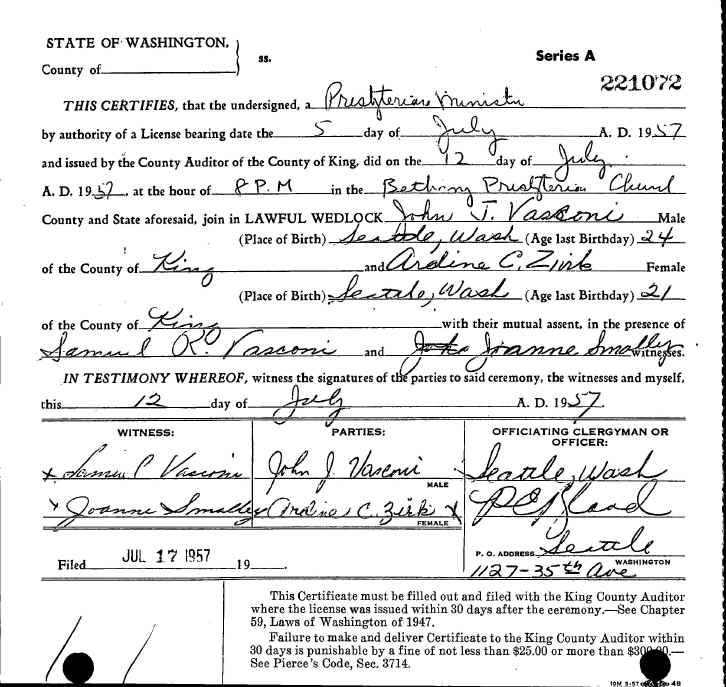 STATE OF WASHINGTON,
County of
ss.
Series A
221072
THIS CERTIFIES, that the undersigned, a Presbyterian Minister
by authority of a License bearing date the 5 day of July A. D. 1957
and issued by the County Auditor of the County of King, did on the 12 day of July
A. D. 1957, at the hour of 8 P.M in the Bethany Presbyterian Church
County and State aforesaid, join in LAWFUL WEDLOCK John J. Vasconi Male
(Place of Birth) Seattle, Wash (Age last Birthday) 24
of the County of King and Ardine C. Zirk Female
(Place of Birth) Seattle, Wash (Age last Birthday) 21
of the County of King with their mutual assent, in the presence of
Samuel R. Vasconi and Joanne Smalley witnesses.
IN TESTIMONY WHEREOF, witness the signatures of the parties to said ceremony, the witnesses and myself,
this 12 day of July A. D. 1957.
WITNESS: PARTIES: OFFICIATING CLERGYMAN OR OFFICER:
x Samuel Vasconi John J. Vasconi Seattle, Wash
MALE
x Joanne Smalley Ardine C. Zirk x
FEMALE
P. O. ADDRESS Seattle
WASHINGTON
1127-35th Ave
Filed JUL 17 1957 19
This Certificate must be filled out and filed with the King County Auditor
where the license was issued within 30 days after the ceremony.—See Chapter
59, Laws of Washington of 1947.
Failure to make and deliver Certificate to the King County Auditor within
30 days is punishable by a fine of not less than $25.00 or more than $300.00.—
See Pierce's Code, Sec. 3714.